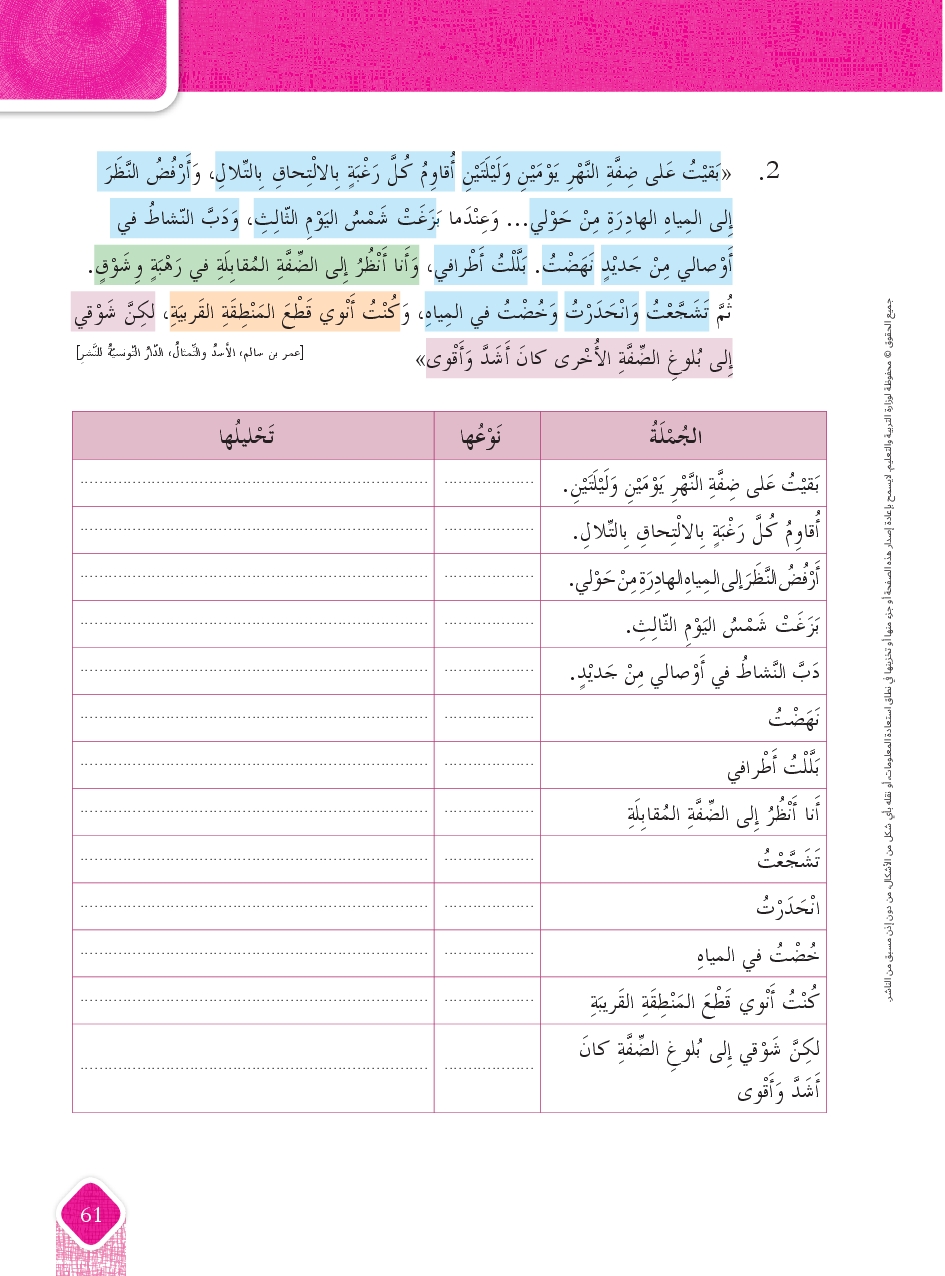 2. «بَقيْتُ عَلى ضِفَّةِ النَّهْرِ يَوْمَيْنِ وَلَيْلَتَيْنِ أُقاوِمُ كُلَّ رَغْبَةٍ بِالالْتِحاقِ بِالتِّلالِ، وَأَرْفُضُ النَّظَرَ
إِلى المِياهِ الهادِرَةِ مِنْ حَوْلي... وَعِنْدَما بَزَغَتْ شَمْسُ اليَوْمِ الثّالِثِ، وَدَبَّ النّشاطُ في
أَوْصالي مِنْ جَديْدٍ نَهَضْتُ. بَلَّلْتُ أَطْرافي، وَأَنا أَنْظُرُ إِلى الضِّفَّةِ المُقابِلَةِ في رَهْبَةٍ وِشَوْقٍ.
ثُمَّ تَشَجَّعْتُ وَانْحَدَرْتُ وَخُضْتُ في المِياهِ، وَكُنْتُ أَنْوي قَطْعَ المَنْطِقَةِ القَريبَةِ، لكِنَّ شَوْقي
إِلى بُلوغِ الضِّفَّةِ الأُخْرى كانَ أَشَدَّ وَأَقْوى»
[عمر بن سالم، الأسدُ والتّمثالُ، الدّارُ التونسيّةُ للنّشرِ]
الجُمْلَةُ نَوْعُها تَحْليلُها
بَقيْتُ عَلى ضِفَّةِ النَّهْرِ يَوْمَيْنِ وَلَيْلَتَيْنِ.
أُقاوِمُ كُلَّ رَغْبَةٍ بِالالْتِحاقِ بِالتِّلالِ.
أَرْفُضُ النَّظَرَ إلى المِياهِ الهادِرَةِ مِنْ حَوْلي.
بَزَغَتْ شَمْسُ اليَوْمِ الثّالِثِ.
دَبَّ النَّشاطُ في أَوْصالي مِنْ جَديْدٍ.
نَهَضْتُ
بَلَّلْتُ أَطْرافي
أَنا أَنْظُرُ إِلى الضِّفَّةِ المُقابِلَةِ
تَشَجَّعْتُ
انْحَدَرْتُ
خُضْتُ في المياهِ
كُنْتُ أَنْوي قَطْعَ المَنْطِقَةِ القَريبَةِ
لكِنَّ شَوْقي إِلى بُلوغِ الضِّفَّةِ كانَ
أَشَدَّ وَأَقْوى
جميع الحقوق © محفوظة لوزارة التربية والتعليم. لايسمح بإعادة إصدار هذه الصفحة أو جزء منها أو تخزينها في نطاق استعادة المعلومات، أو نقله بأي شكل من الأشكال، من دون إذن مسبق من الناشر.
61